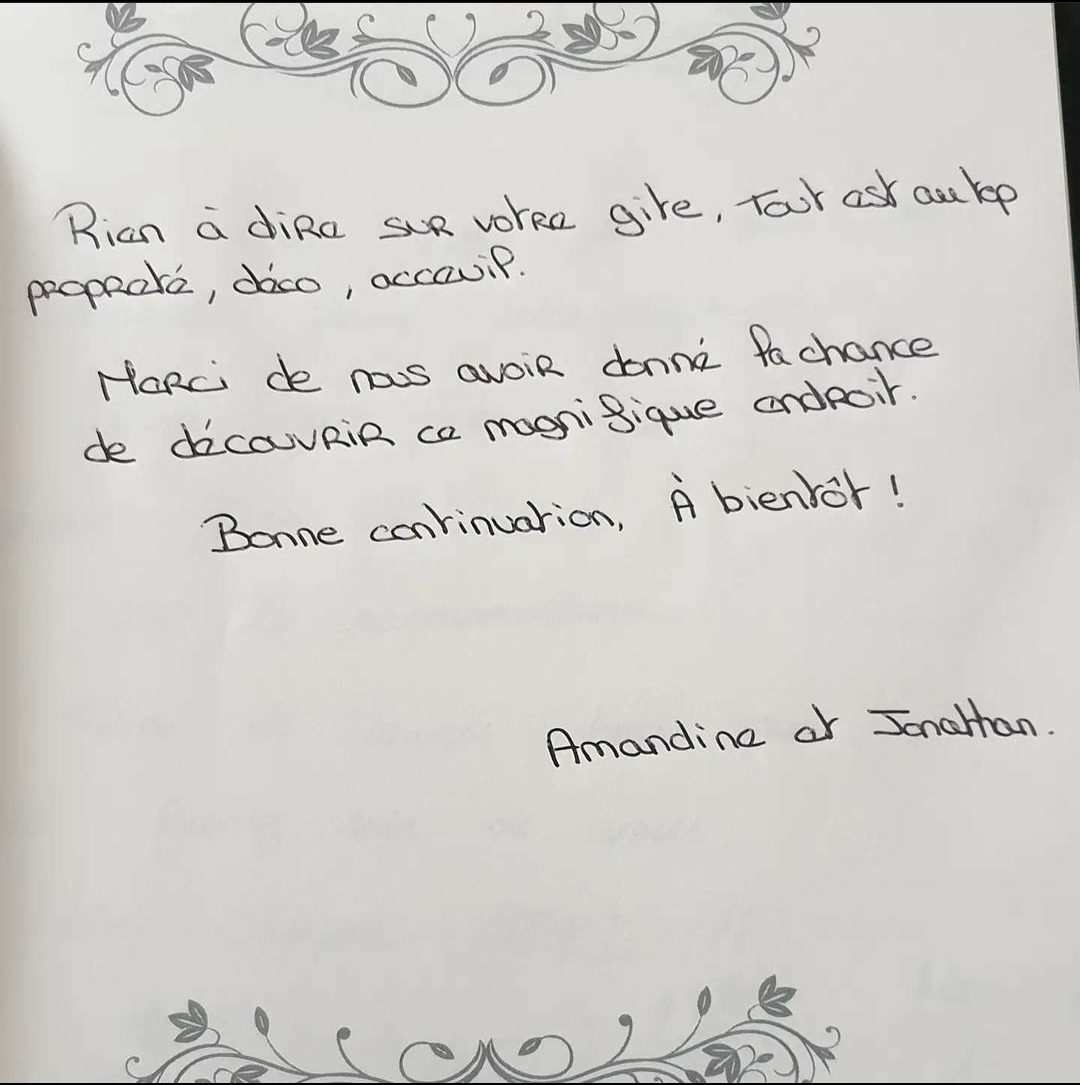 Rien à dire sur votre gite, Tout est au top
propreté, déco, acceuil.
Merci de nous avoir donné la chance
de découvrir ce magnifique endroit.
Bonne continuation, À bientôt !
Amandine et Jonathan.